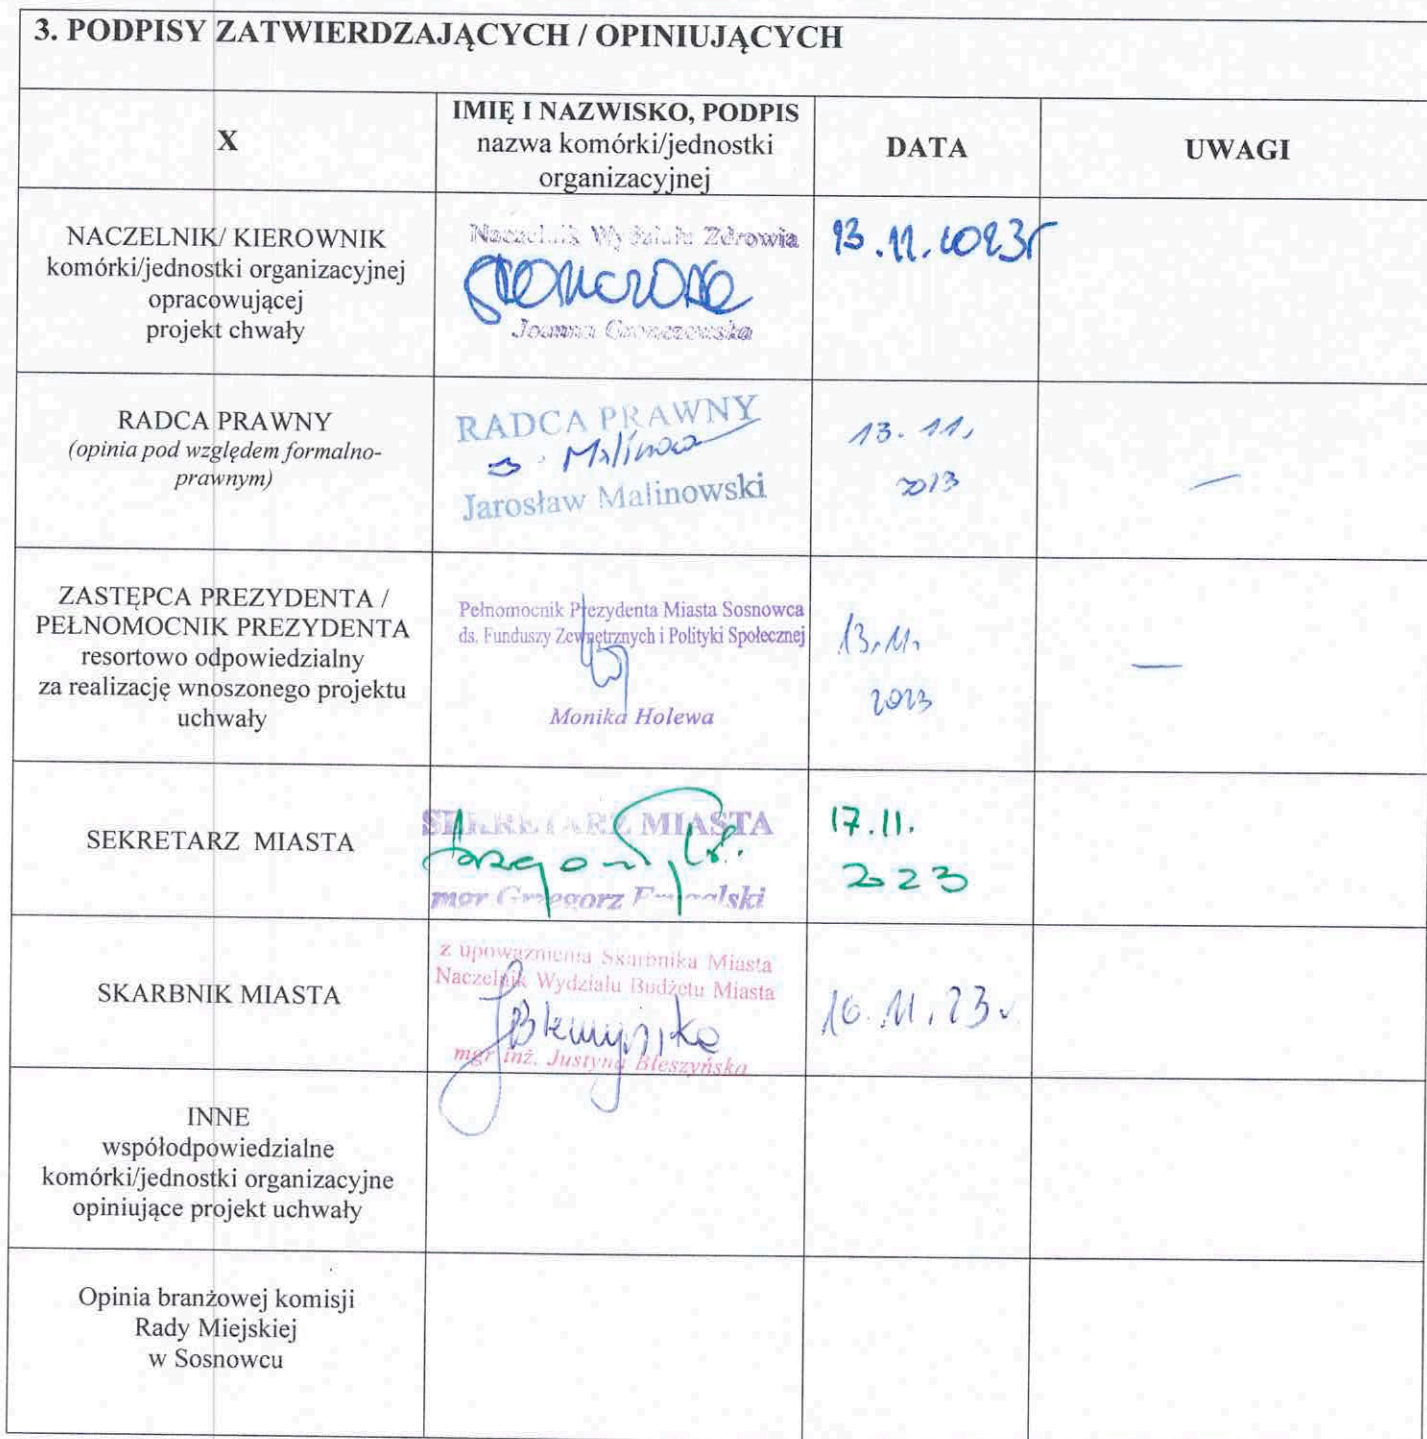 3. PODPISY ZATWIERDZAJĄCYCH / OPINIUJĄCYCH
X
IMIĘ I NAZWISKO, PODPIS
nazwa komórki/jednostki
organizacyjnej
DATA
UWAGI
NACZELNIK/ KIEROWNIK
komórki/jednostki organizacyjnej
opracowującej
projekt chwały
Naczelnik Wydziału Zdrowia
Joanna
13.11.2023r
RADCA PRAWNY
(opinia pod względem formalno-
prawnym)
RADCA PRAWNY
Jarosław Malinowski
13.11.
2023
—
ZASTĘPCA PREZYDENTA /
PEŁNOMOCNIK PREZYDENTA
resortowo odpowiedzialny
za realizację wnoszonego projektu
uchwały
Pełnomocnik Prezydenta Miasta Sosnowca
ds. Funduszy Zewnętrznych i Polityki Społecznej
Monika Holewa
13.11.
2023
—
SEKRETARZ MIASTA
SEKRETARZ MIASTA
mgr Grzegorz
17.11.
2023
SKARBNIK MIASTA
z upoważnienia Skarbnika Miasta
Naczelnik Wydziału Budżetu Miasta
mgr inż. Justyna Błeszyńska
16.11.23r
INNE
współodpowiedzialne
komórki/jednostki organizacyjne
opiniujące projekt uchwały
Opinia branżowej komisji
Rady Miejskiej
w Sosnowcu